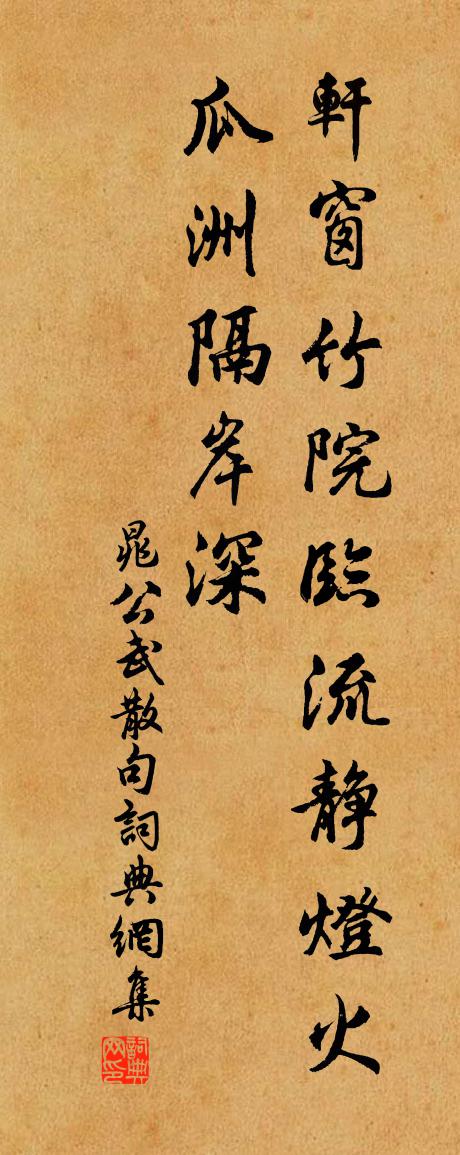 軒窗竹院臨流静燈火
瓜洲隔岸深
晁公武散句詞典網集
詞典網印